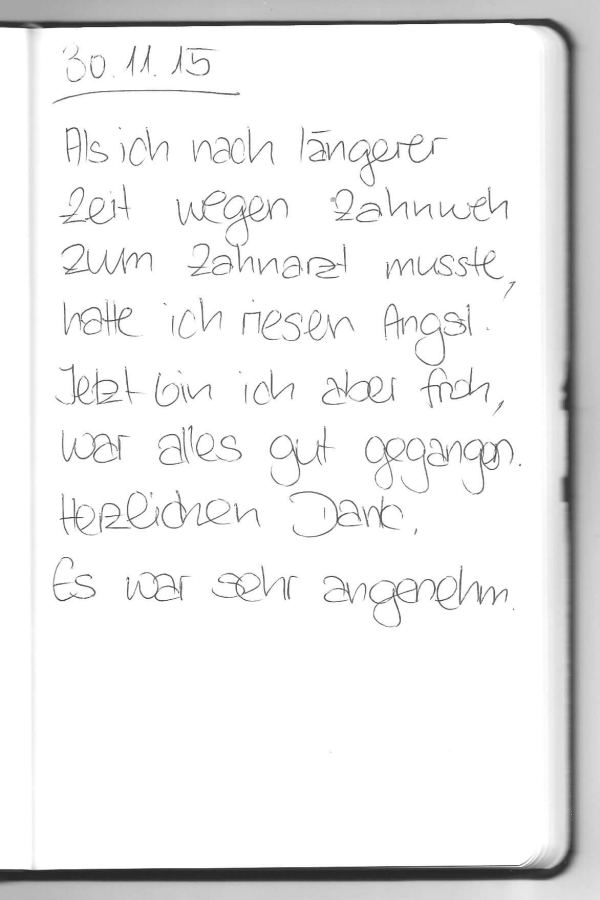 30.11.15
Als ich nach längerer
Zeit wegen Zahnweh
zum Zahnarzt musste,
hatte ich riesen Angst.
Jetzt bin ich aber froh,
war alles gut gegangen.
Herzlichen Dank,
Es war sehr angenehm.